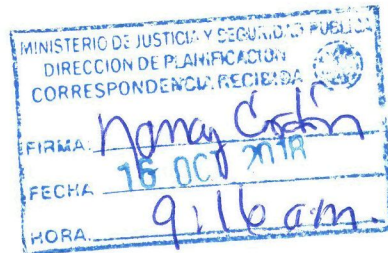 MINISTERIO DE JUSTICIA Y SEGURIDAD PUBLICA
DIRECCION DE PLANIFICACION
CORRESPONDENCIA RECIBIDA
FIRMA:
FECHA 16 OCT 2018
HORA 9:16 am.